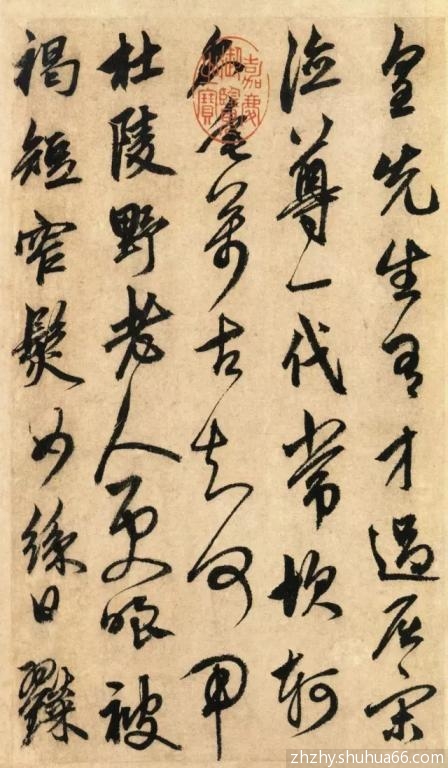 皇先生有才過屈宋
德尊一代常坎軻
名垂萬古知何用
杜陵野老人更嗤被
褐短窄鬢如絲日糴
嘉慶御覽之寶
zhzhy.shuhua66.com